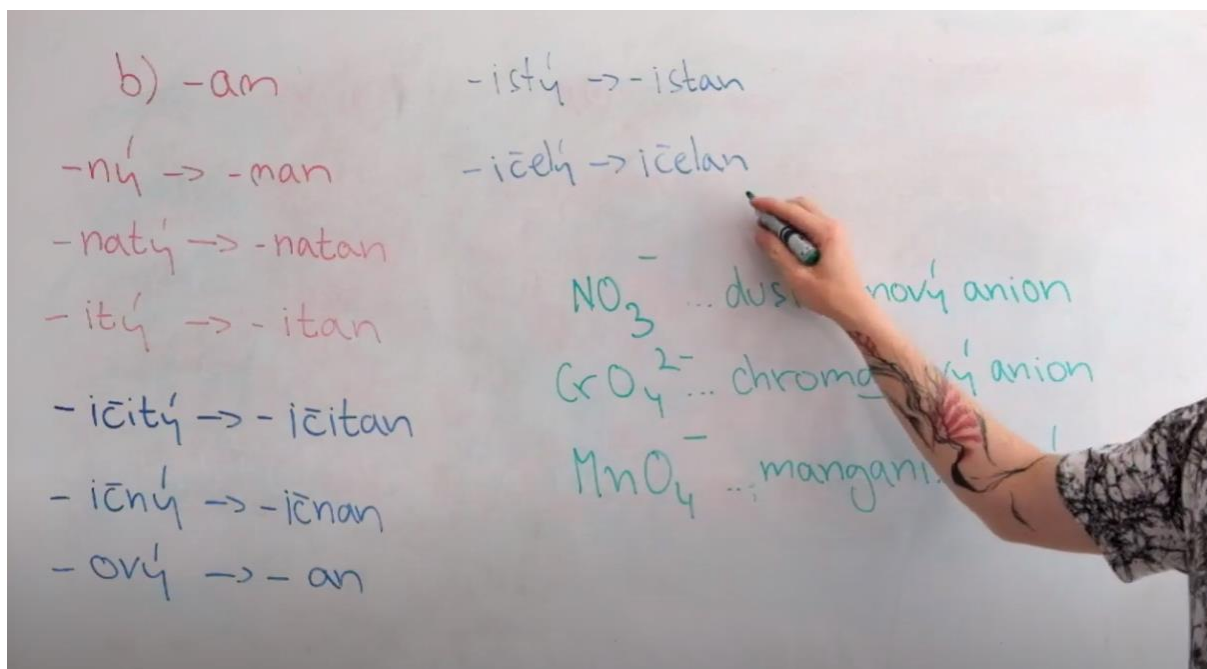 b) -an
-ný -> -nan
-natý -> -natan
-itý -> -itan
-ičitý -> -ičitan
-ičný -> -ičnan
-ový -> -an
-istý -> -istan
-ičelý -> ičelan
NO₃⁻ ... anion
CrO₄²⁻ ... anion
MnO₄⁻ ...